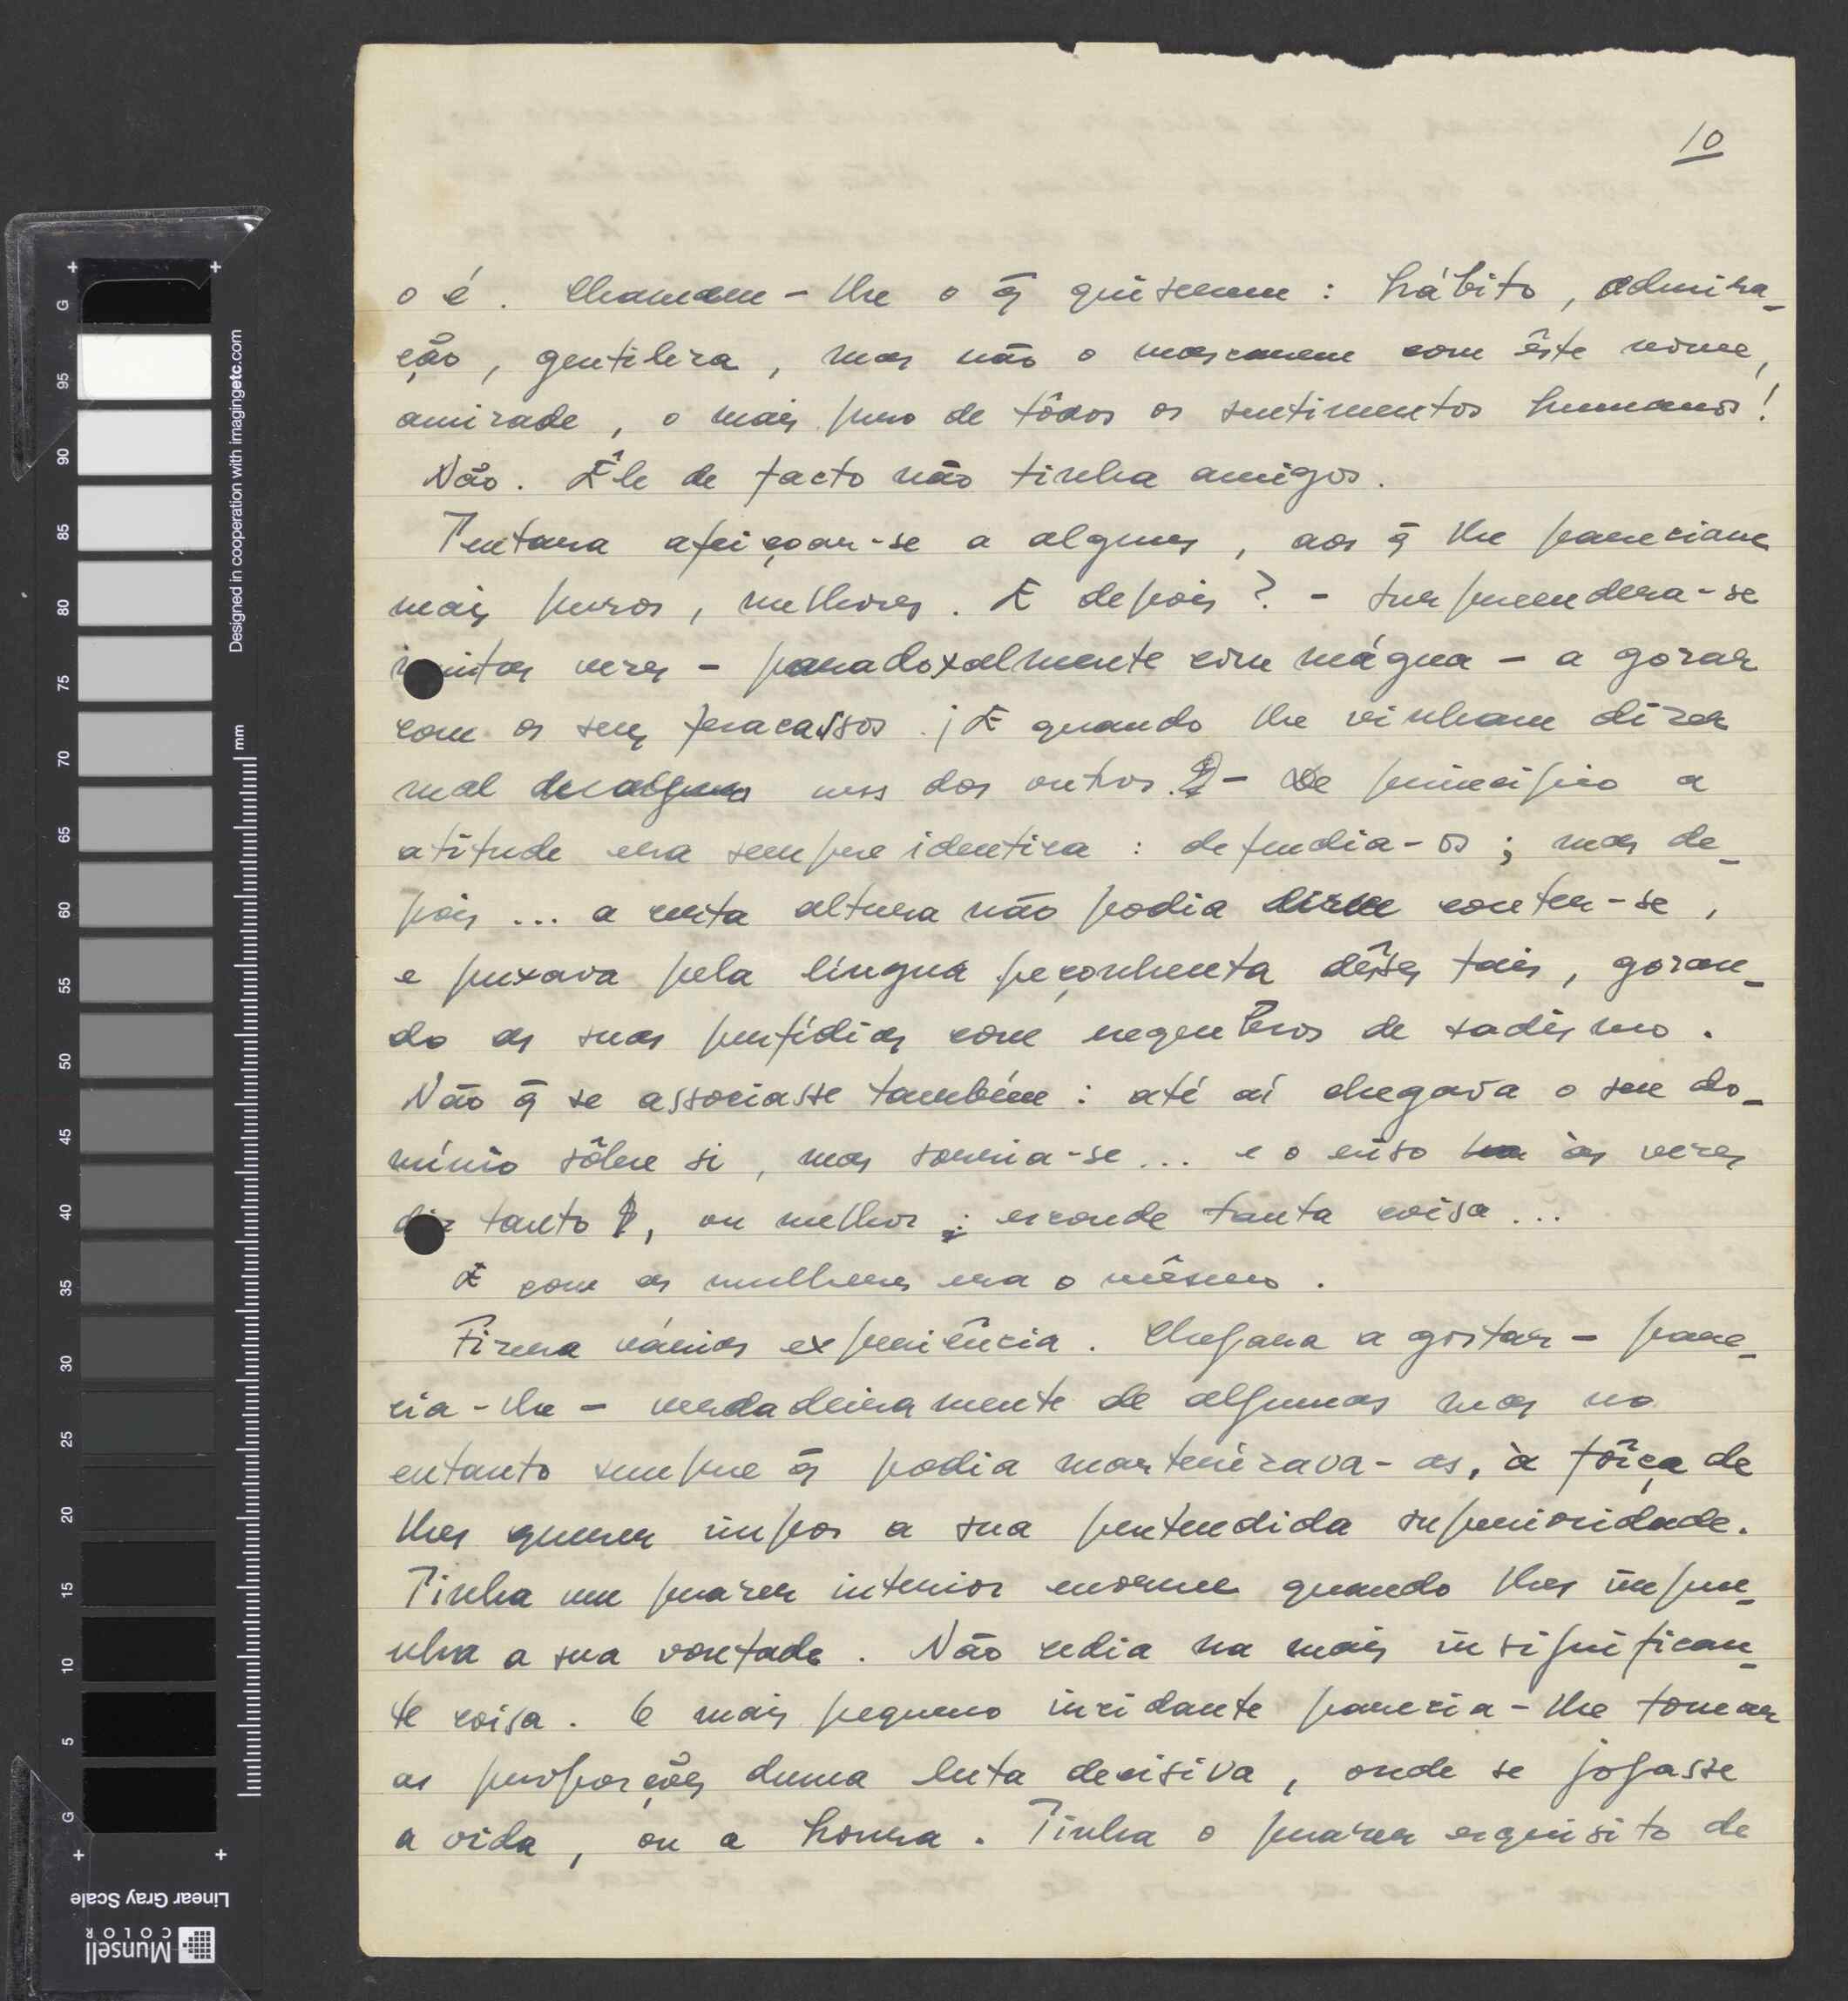 10
o é. Chamem-lhe o q̃ quiserem: hábito, admira-
ção, gentileza, mas não o mascarem com êste nome,
amizade, o mais puro de tôdos os sentimentos humanos!
Não. Êle de facto não tinha amigos.
Tentara afeiçoar-se a alguns, aos q̃ lhe pareciam
mais puros, melhores. E depois? - surpreendera-se
muitas vezes - paradoxalmente com mágua - a gozar
com os seus fracassos. E quando lhe vinham dizer
mal de alguns uns dos outros? - De princípio a
atitude era sempre identica: defendia-os; mas de-
pois... a certa altura não podia conter-se,
e puxava pela língua peçonhenta dêsses tais, gozan-
do as suas perfídias com requebros de sadismo.
Não q̃ se associasse também: até aí chegava o seu do-
mínio sôbre si, mas sorria-se... e o riso às vezes
diz tanto, ou melhor: esconde tanta coisa...
E com as mulheres era o mêsmo.
Fizera várias experiência. Chegara a gostar - pare-
cia-lhe - verdadeiramente de algumas mas no
entanto sempre q̃ podia martirizava-as, à fôrça de
lhes querer impor a sua pretendida superioridade.
Tinha um prazer interior enorme quando lhes impu-
nha a sua vontade. Não cedia na mais insignifican-
te coisa. O mais pequeno incidante parecia-lhe tomar
as proporções duma luta decisiva, onde se jogasse
a vida, ou a honra. Tinha o prazer esquisito de
Designed in cooperation with imagingetc.com
mm
G
95
90
85
80
75
70
65
60
55
50
45
40
35
30
25
20
15
10
5
G
Linear Gray Scale
Munsell
COLOR